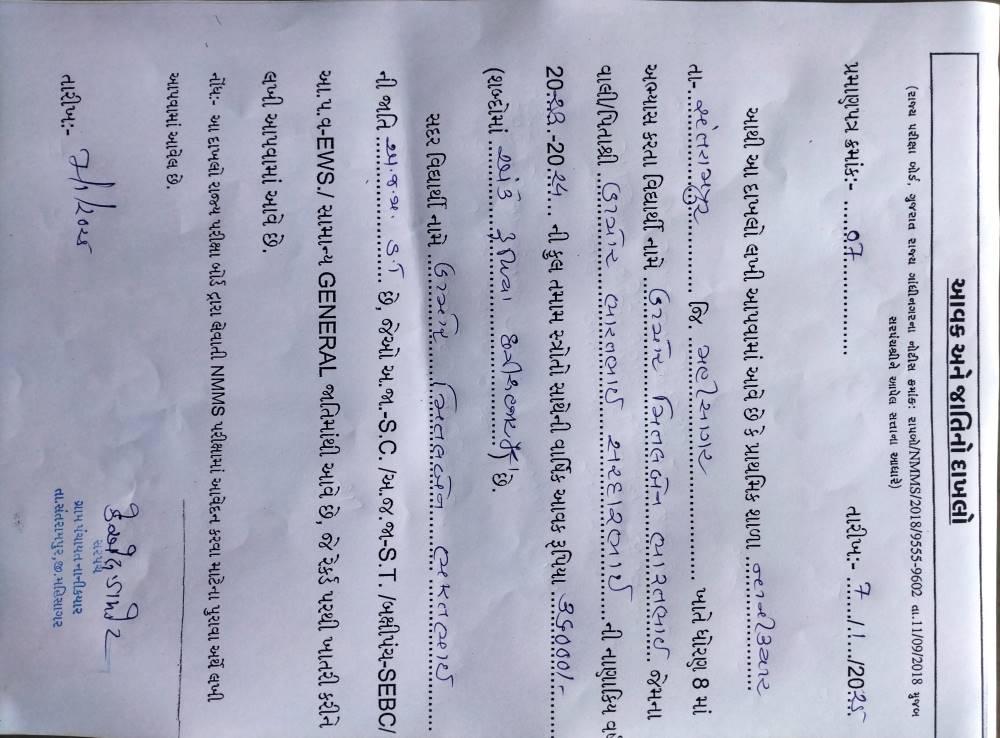 આવક અને જાતિનો દાખલો
(રાજ્ય પરીક્ષા બોર્ડ, ગુજરાત રાજ્ય ગાંધીનગરના નોટીસ ક્રમાંક: રાપબો/NMMS/2018/9555-9602 તા.11/09/2018 મુજબ
સરપંચશ્રીને આપેલ સત્તાના આધારે)
પ્રમાણપત્ર ક્રમાંક:- .....07................ તારીખ:- ...7.../.1..../2025.
આથી આ દાખલો લખી આપવામાં આવે છે કે પ્રાથમિક શાળા ..નાનીક્યાર............
તા- ..સંતરામપુર............ જિ. ..મહીસાગર............ ખાતે ધોરણ 8 માં
અભ્યાસ કરતા વિદ્યાર્થી નામે .ડામોર મિતલબેન ભારતભાઈ.. જેમના
વાલી/પિતાશ્રી ..ડામોર ભારતભાઈ સરદારભાઈ......ની નાણાકિય વર્ષ
2023.-2024.... ની કુલ તમામ સ્ત્રોતો સાથેની વાર્ષિક આવક રૂપિયા .36000/-........
(શબ્દોમાં ...અંકે રૂપિયા છત્રીસ હજાર પુરા) છે.
સદર વિદ્યાર્થી નામે ...ડામોર મિતલબેન ભારતભાઈ........
ની જાતિ ..અ.જ.જા. S.T.. છે, જેઓ અ.જા.-S.C. /અ.જ.જા-S.T /બક્ષીપંચ-SEBC/
આ.પ.વ-EWS./ સામાન્ય GENERAL જાતિમાંથી આવે છે, જે રેકર્ડ પરથી ખાતરી કરીને
લખી આપવામાં આવે છે.
નોંધ:- આ દાખલો રાજ્ય પરીક્ષા બોર્ડ દ્વારા લેવાતી NMMS પરીક્ષામાં આવેદન કરવા માટેના પુરાવા અર્થે લખી
આપવામાં આવેલ છે.
તારીખ:- 7/1/2025
સરપંચ
ગ્રામ પંચાયત નાનીક્યાર
તા.સંતરામપુર, જી.મહિસાગર